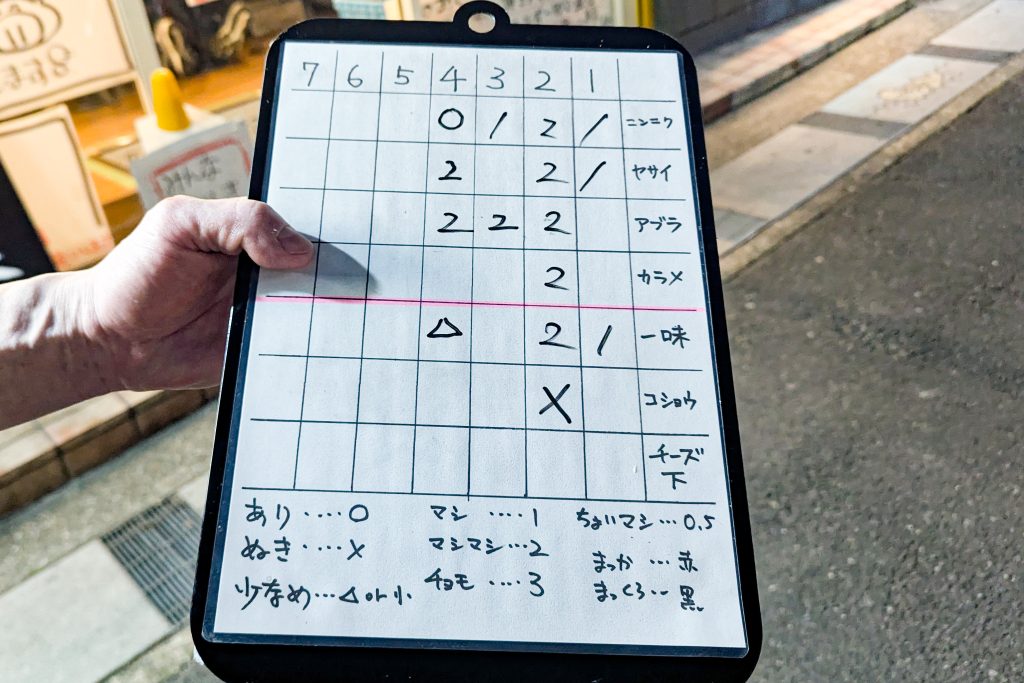 7 6 5 4 3 2 1
O / 2 / ニンニク
2 2 / ヤサイ
2 2 2 アブラ
2 カラメ
△ 2 / 一味
X コショウ
チーズ
下
あり‥‥O マシ ‥‥1 ちょいマシ…0.5
ぬき‥‥X マシマシ…2 まっか …赤
少なめ…△or小 チョモ ‥‥3 まっくろ‥黒